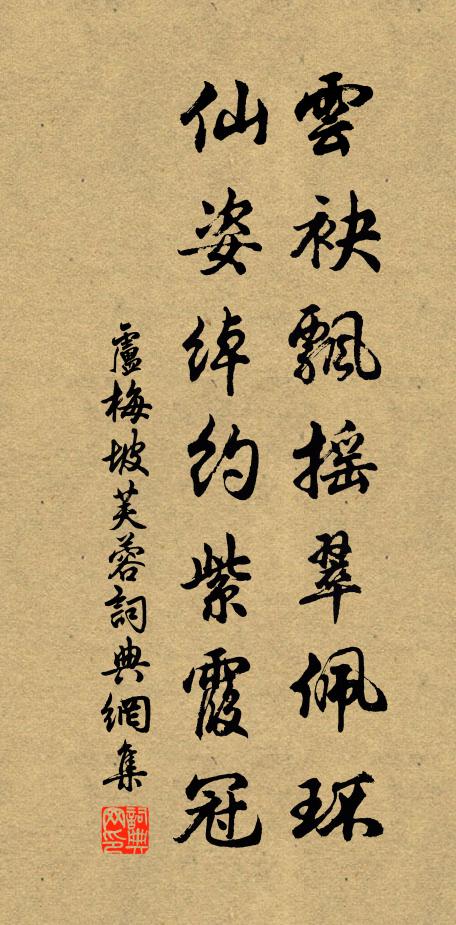 雲袂飄搖翠佩環
仙姿綽約紫霞冠
盧梅坡芙蓉詞典網集
詞典網印